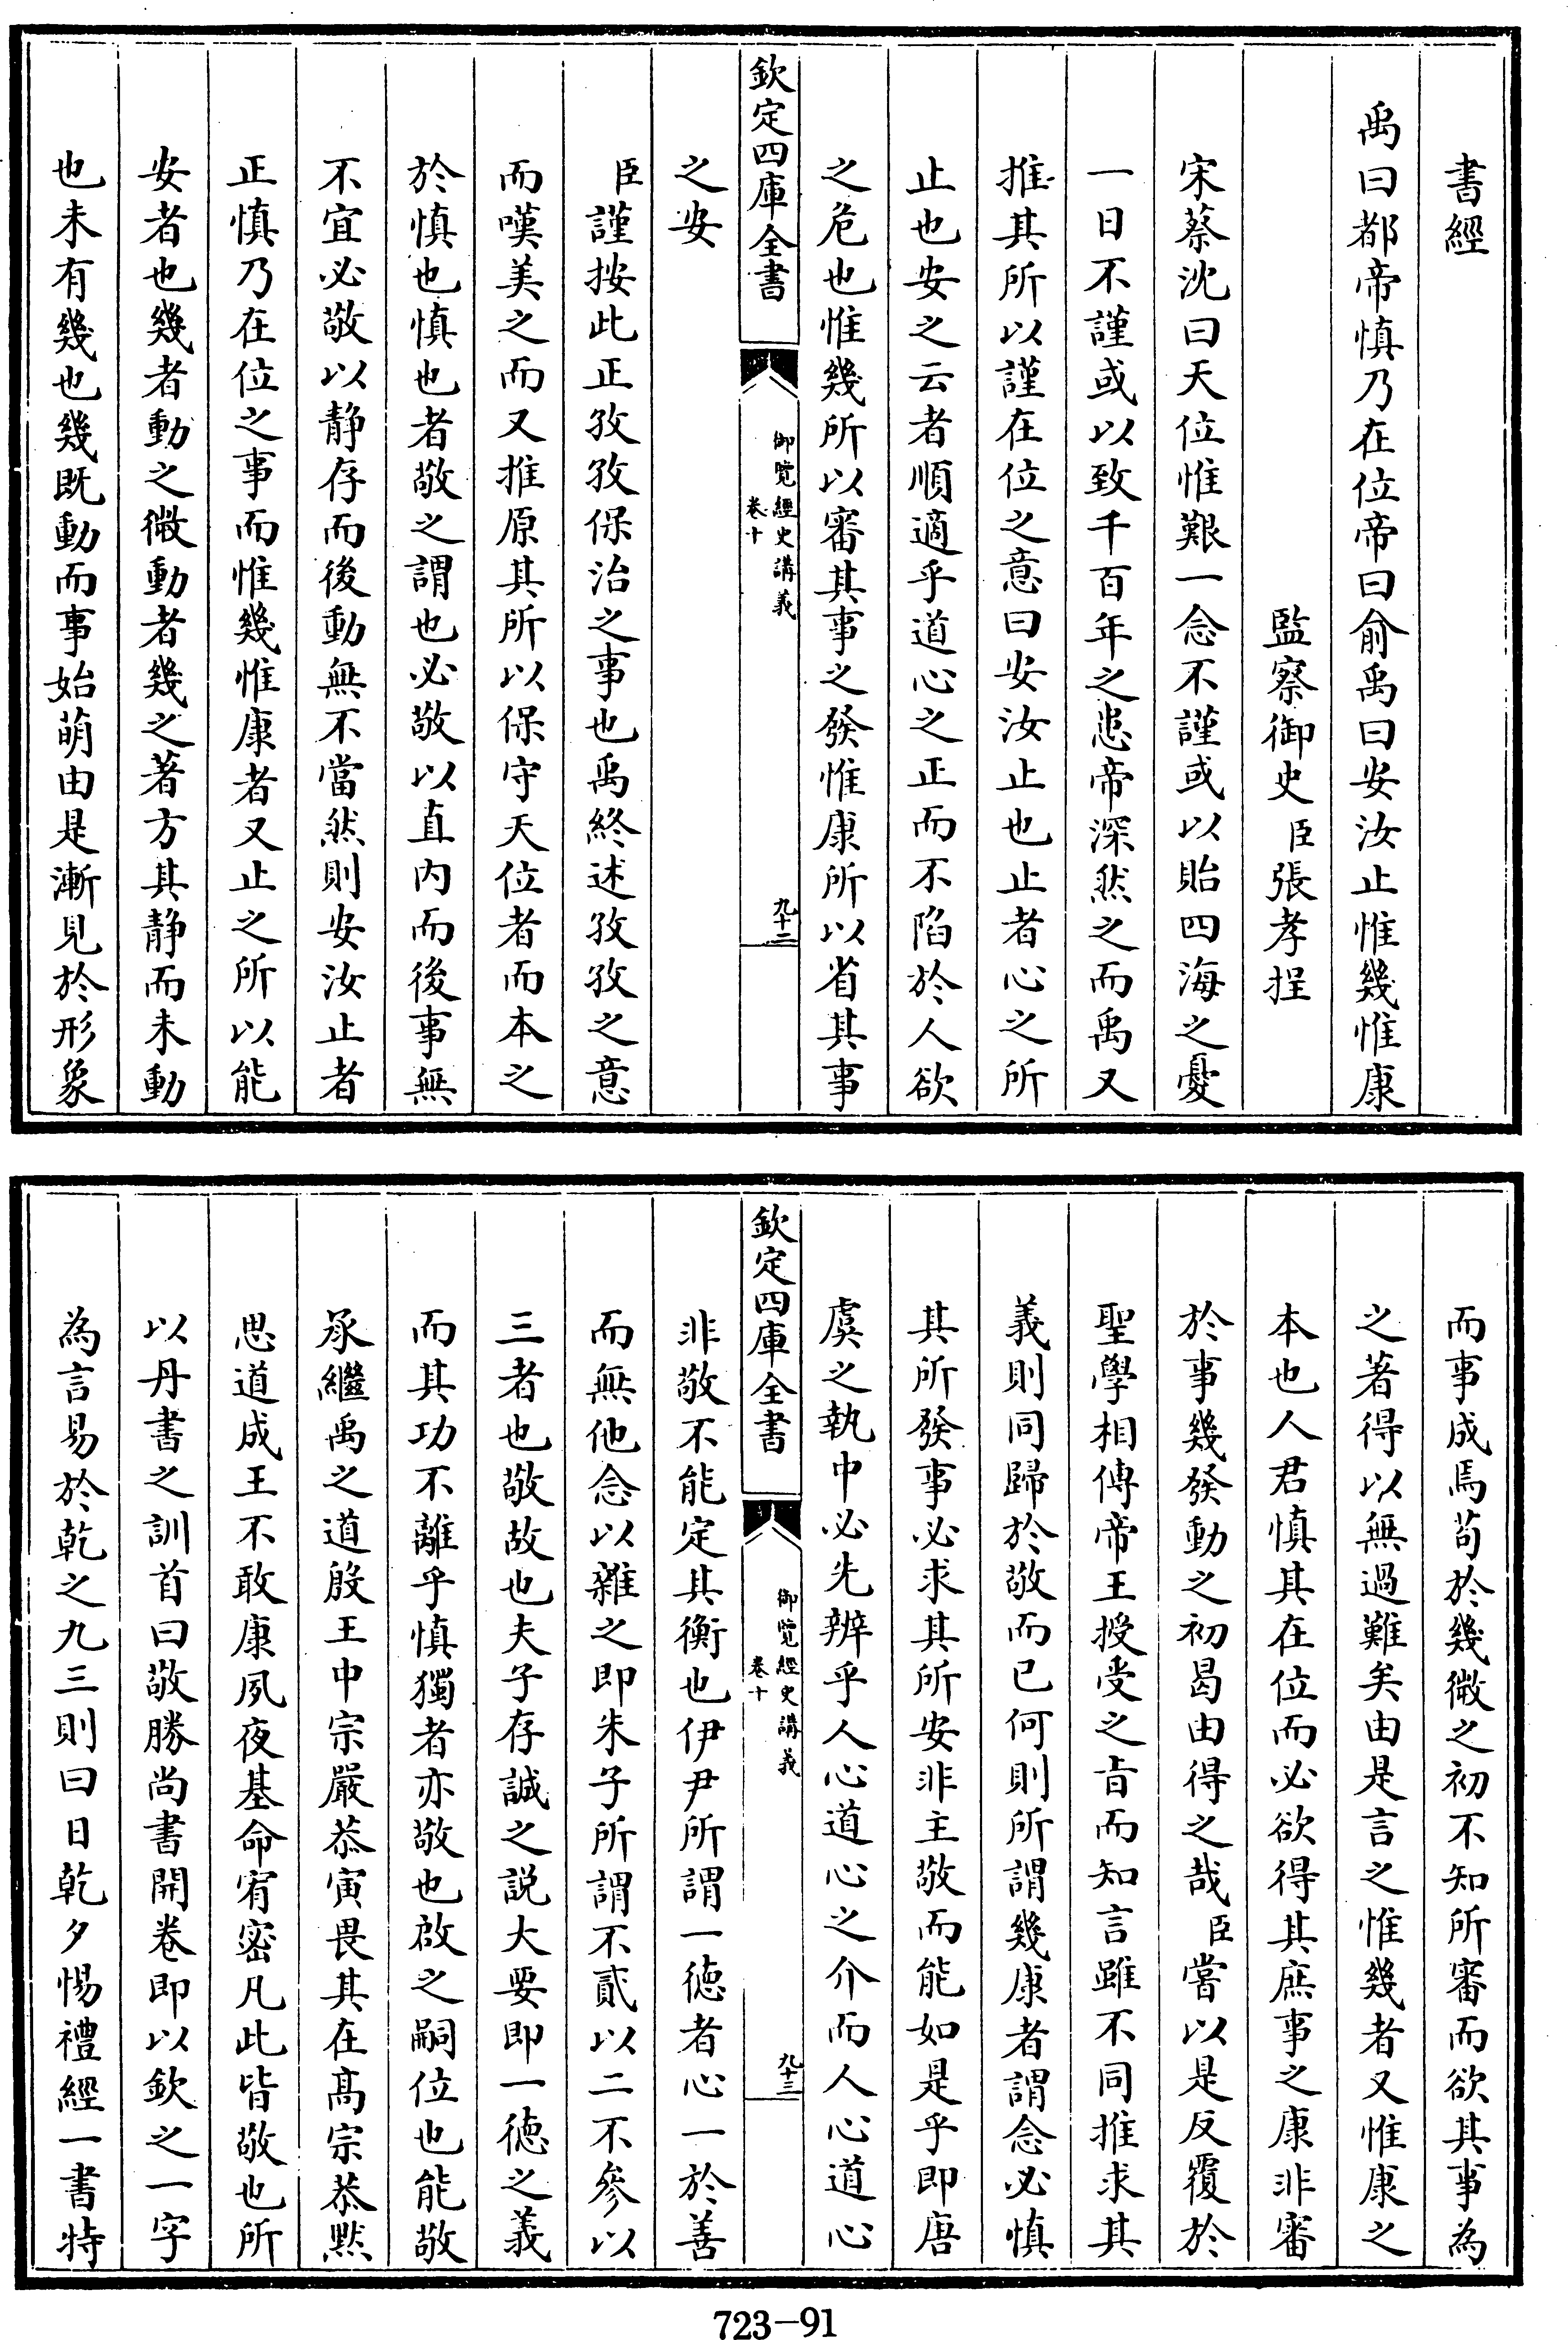 書經
禹曰都帝慎乃在位帝曰俞禹曰安汝止惟幾惟康
監察御史臣張孝捏
宋蔡沈曰天位惟艱一念不謹或以貽四海之憂
一日不謹或以致千百年之患帝深然之而禹又
推其所以謹在位之意曰安汝止也止者心之所
止也安之云者順適乎道心之正而不陷於人欲
之危也惟幾所以審其事之發惟康所以省其事
欽定四庫全書
御覽經史講義
卷十
九十二
之安
臣謹按此正孜孜保治之事也禹終述孜孜之意
而嘆美之而又推原其所以保守天位者而本之
於慎也慎也者敬之謂也必敬以直内而後事無
不宜必敬以静存而後動無不當然則安汝止者
正慎乃在位之事而惟幾惟康者又止之所以能
安者也幾者動之微動者幾之著方其静而未動
也未有幾也幾既動而事始萌由是漸見於形象
而事成焉苟於幾微之初不知所審而欲其事為
之著得以無過難矣由是言之惟幾者又惟康之
本也人君慎其在位而必欲得其庶事之康非審
於事幾發動之初曷由得之哉臣嘗以是反覆於
聖學相傳帝王授受之旨而知言雖不同推求其
義則同歸於敬而已何則所謂幾康者謂念必慎
其所發事必求其所安非主敬而能如是乎即唐
虞之執中必先辨乎人心道心之介而人心道心
欽定四庫全書
御覽經史講義
卷十
九十三
非敬不能定其衡也伊尹所謂一徳者心一於善
而無他念以雜之即朱子所謂不貳以二不參以
三者也敬故也夫子存誠之説大要即一徳之義
而其功不離乎慎獨者亦敬也啟之嗣位也能敬
承繼禹之道殷王中宗嚴恭寅畏其在髙宗恭黙
思道成王不敢康夙夜基命宥密凡此皆敬也所
以丹書之訓首曰敬勝尚書開卷即以欽之一字
為言易於乾之九三則曰日乾夕惕禮經一書特
723-91